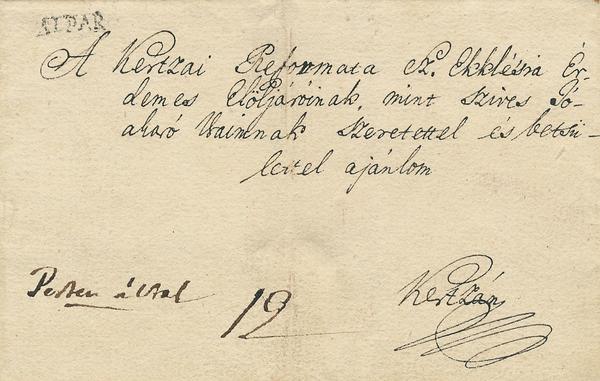 ALPÁR
A Kertzai Reformata Sz. Ekklésia Ér-
demes Elöljáróinak, mint szives Jó-
akaró Uraimnak szeretettel és betsü-
lettel ajánlom
Pesten által
12
Kertzán